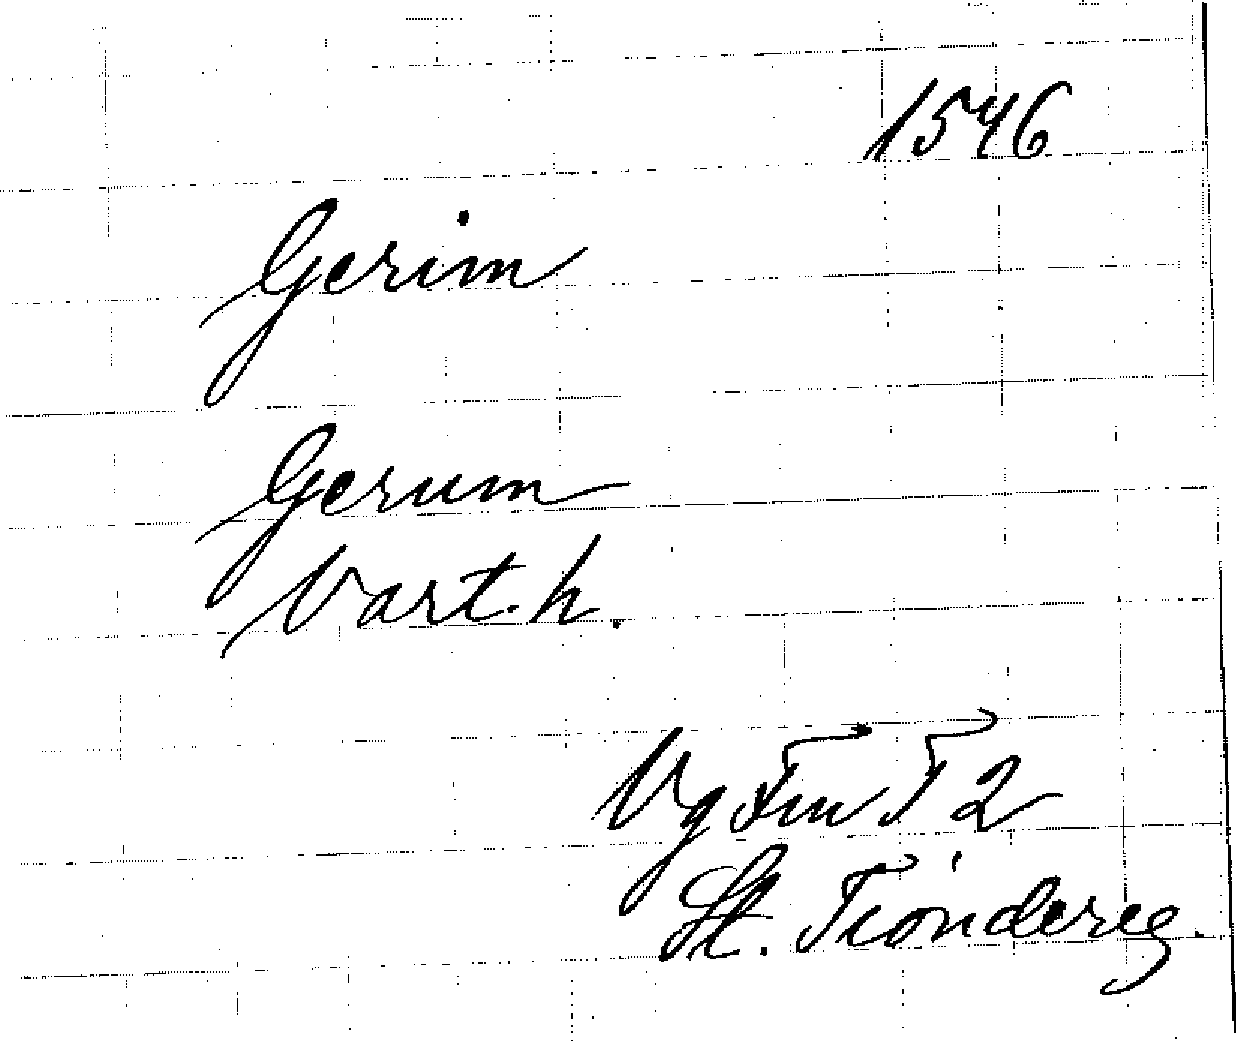 1546
Gerim
Gerum
Vart.h.
Vg Fm T 2
St. Tiondereg.